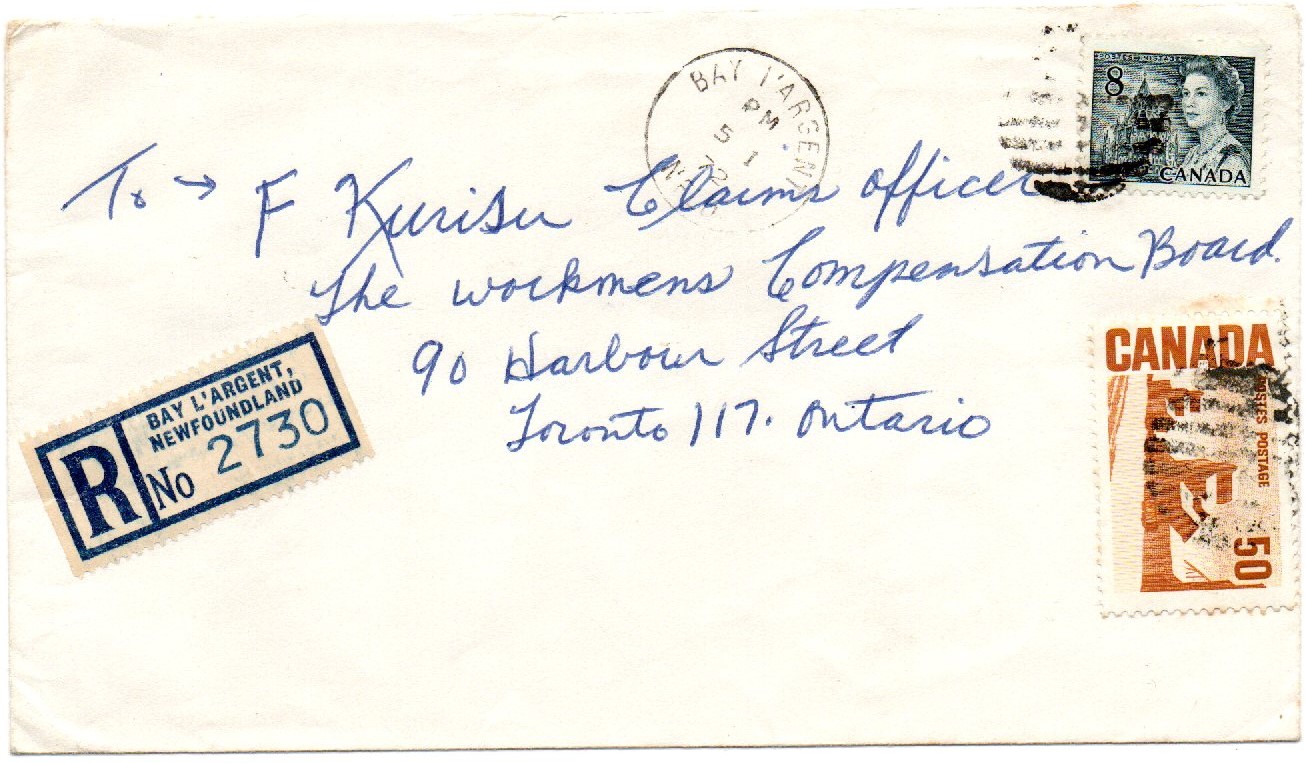 BAY L'ARGENT
PM
5 1
72
8
CANADA
To → F Kurisu Claims officer
The workmens Compensation Board.
90 Harbour Street
Toronto 117. Ontario
R
BAY L'ARGENT,
NEWFOUNDLAND
No 2730
CANADA
POSTES POSTAGE
50